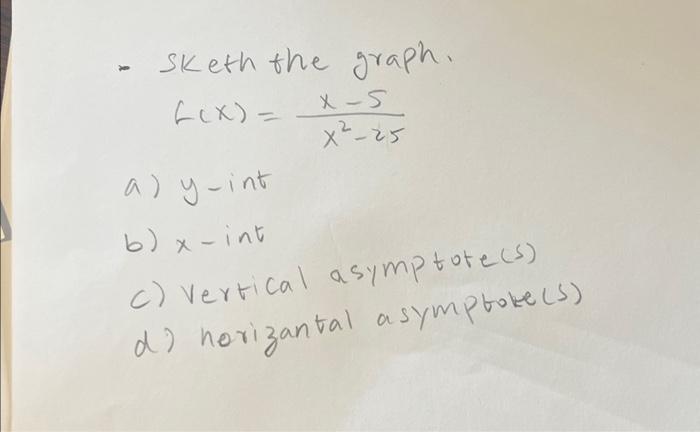 - Sketh the graph.
f(x) = \frac{x-5}{x^2-25}
a) y-int
b) x-int
c) vertical asymptote(s)
d) horizantal asymptote(s)